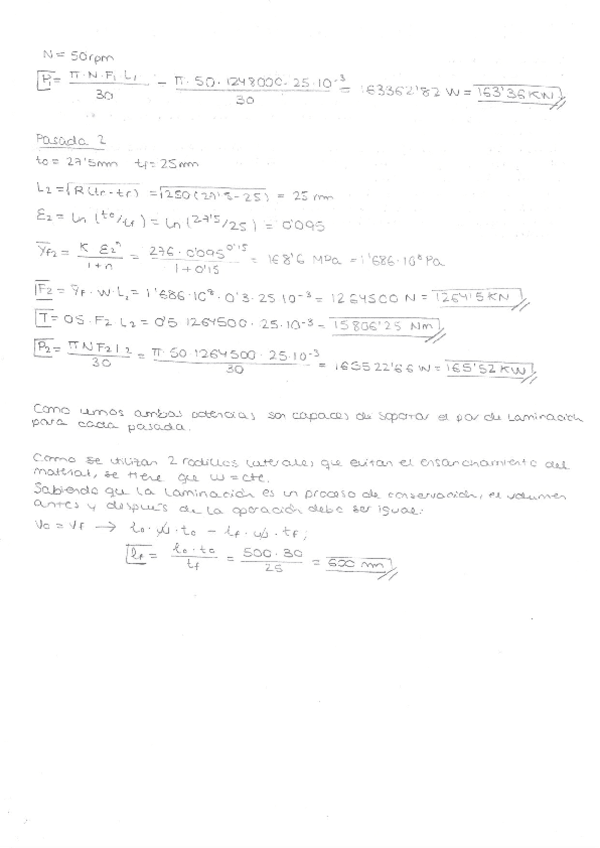 N = 50rpm
P₁ = π·N·F₁ L₁ / 30 = π·50·1248000·25·10⁻³ / 30 = 163362'82 W = 163'36 KW
Pasada 2
to = 27'5mm tf = 25mm
L₂ = √R(to-tf) = √250(27'5-25) = 25 mm
ε₂ = ln (to/tf) = ln (27'5/25) = 0'095
Ȳf₂ = K ε₂ⁿ / 1+n = 276·0'095^0'15 / 1+0'15 = 168'6 MPa = 1'686·10⁸ Pa
F₂ = Ȳf·W·L₁ = 1'686·10⁸·0'3·25 10⁻³ = 1264500 N = 1264'5 KN
T = 0'5·F₂ L₂ = 0'5 1264500·25·10⁻³ = 15806'25 Nm
P₂ = π N F₂ L₂ / 30 = π·50·1264500·25·10⁻³ / 30 = 165522'66 W = 165'52 KW
Como vemos ambas potencias son capaces de soportar el par de laminación
para cada pasada.
Como se utilizan 2 rodillos laterales que evitan el ensanchamiento del
material, se tiene que w = cte.
Sabiendo que la laminación es un proceso de conservación, el volumen
antes y después de la operación debe ser igual:
Vo = Vf → lo·w·to = lf·w·tf;
lf = lo·to / tf = 500·30 / 25 = 600 mm